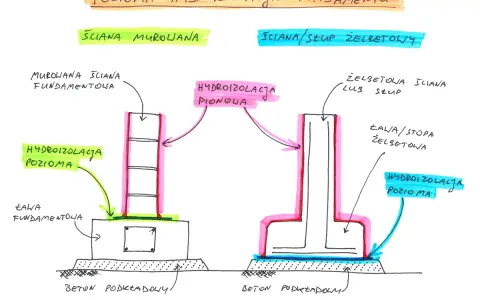 ŚCIANA MUROWANA
ŚCIANA/SŁUP ŻELBETOWY
MUROWANA ŚCIANA
FUNDAMENTOWA
HYDROIZOLACJA
PIONOWA
ŻELBETOWA ŚCIANA
LUB SŁUP
HYDROIZOLACJA
POZIOMA
ŁAWA/STOPA
ŻELBETOWA
HYDROIZOLACJA
POZIOMA
ŁAWA
FUNDAMENTOWA
BETON PODKŁADOWY
BETON PODKŁADOWY